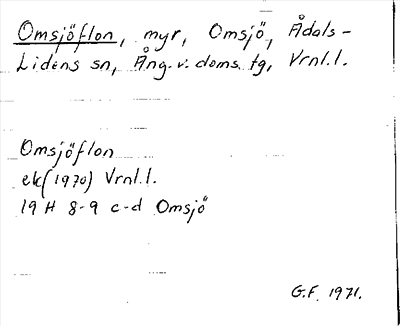 Omsjöflon, myr, Omsjö, Ådals-
Lidens sn, Ång. v. doms. tg, Vrnl. l.
Omsjöflon
ek (1970) Vrnl. l.
19 H 8-9 c-d Omsjö
G.F. 1971.